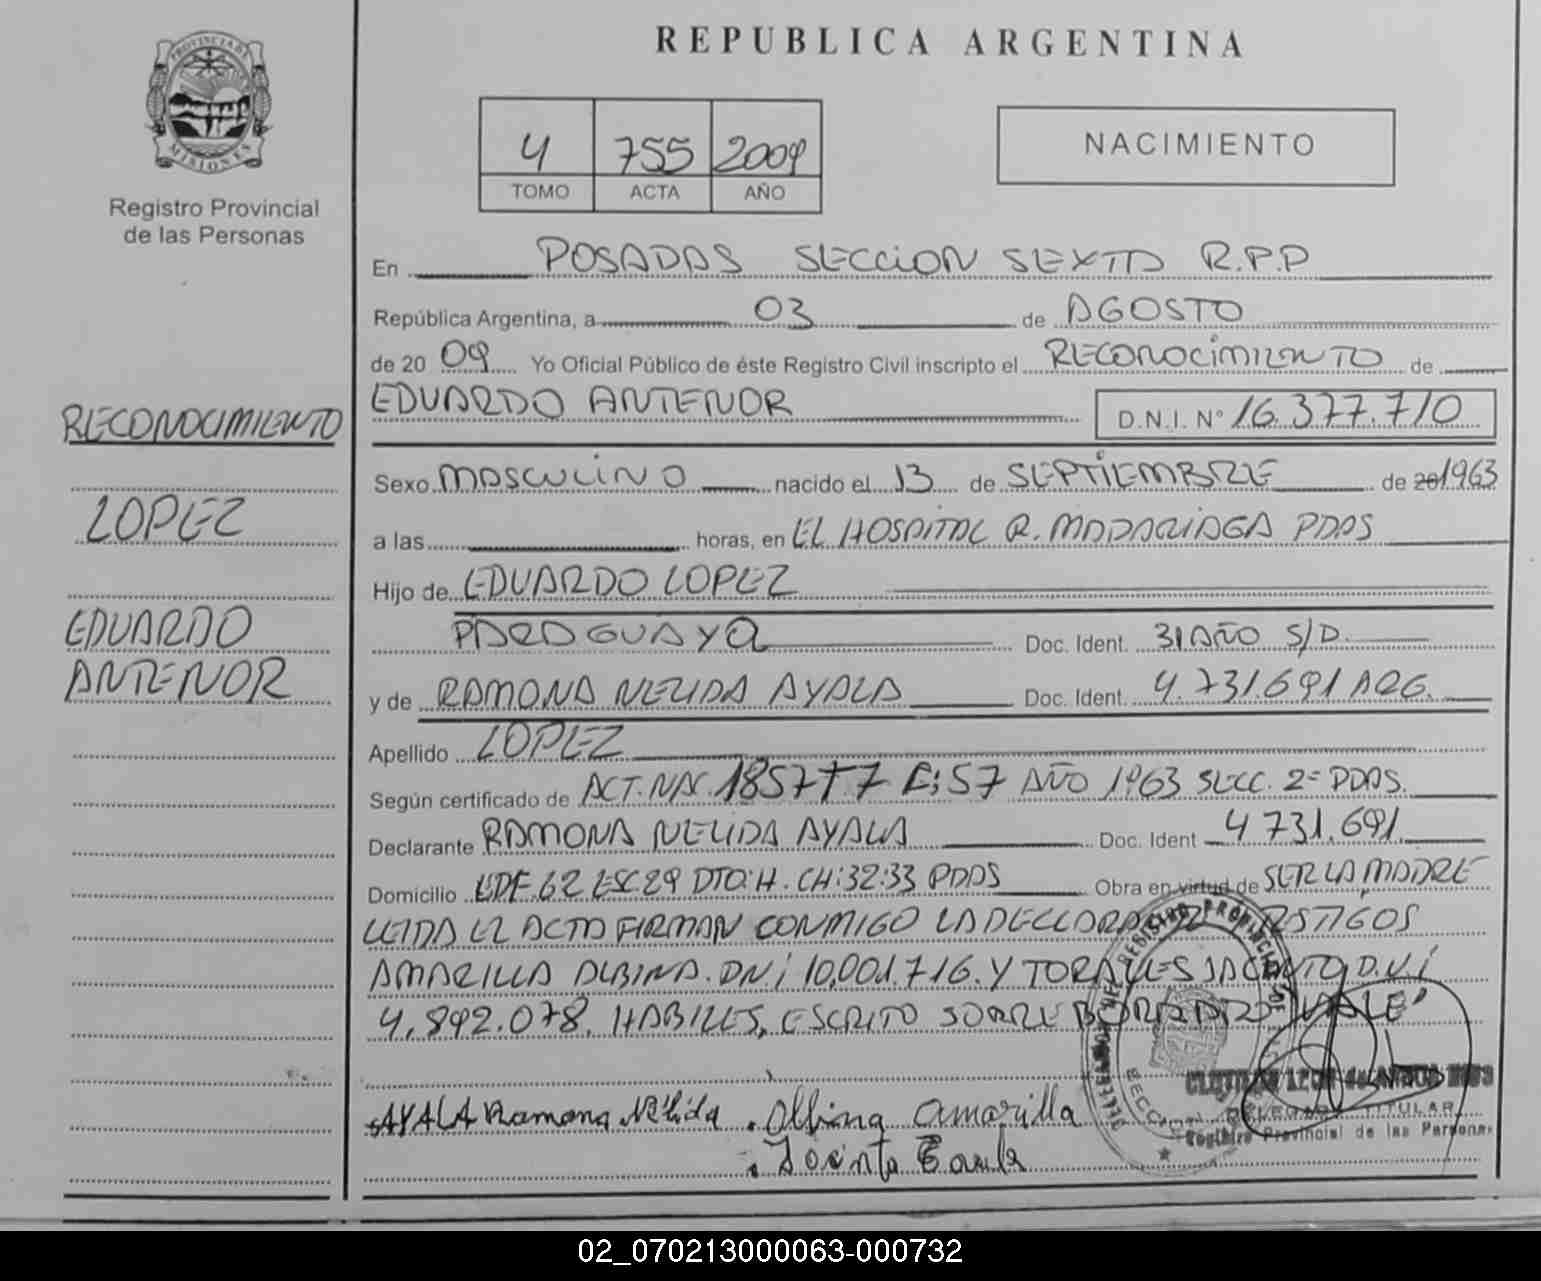 PROVINCIA DE
MISIONES
Registro Provincial
de las Personas
RECONOCIMIENTO
LOPEZ
EDUARDO
ANTENOR
REPUBLICA ARGENTINA
4 755 2009
TOMO ACTA AÑO
NACIMIENTO
En POSADAS SECCION SEXTA R.P.P
República Argentina, a 03 de AGOSTO
de 20 09 Yo Oficial Público de éste Registro Civil inscripto el RECONOCIMIENTO de
EDUARDO ANTENOR D.N.I. Nº 16.377.710
Sexo MASCULINO nacido el 13 de SEPTIEMBRE de 20 1963
a las horas, en EL HOSPITAL R. MADARIAGA PDAS
Hijo de EDUARDO LOPEZ
PARAGUAYA Doc. Ident. 31 AÑO S/D.
y de RAMONA NELIDA AYALA Doc. Ident. 4.731.691 ARG.
Apellido LOPEZ
Según certificado de ACT. NAC. 1857 T 7 F: 57 AÑO 1963 SECC. 2ª PDAS.
Declarante RAMONA NELIDA AYALA Doc. Ident 4 731.691.
Domicilio EDF 62 ESC 29 DTO: H. CH: 32-33 PDAS Obra en virtud de SER LA MADRE
LEIDA EL ACTA FIRMAN CONMIGO LA DECLARANTE TESTIGOS
AMARILLA ALBINA. DNI 10.001.716. Y TORALES JACINTO D.N.I
4.892.078. HABILES, ESCRITO SOBRE BORRADO "VALE"
AYALA Ramona Nelida . Albina Amarilla
. Jacinto
DELEGADA TITULAR
Registro Provincial de las Personas
02_070213000063-000732